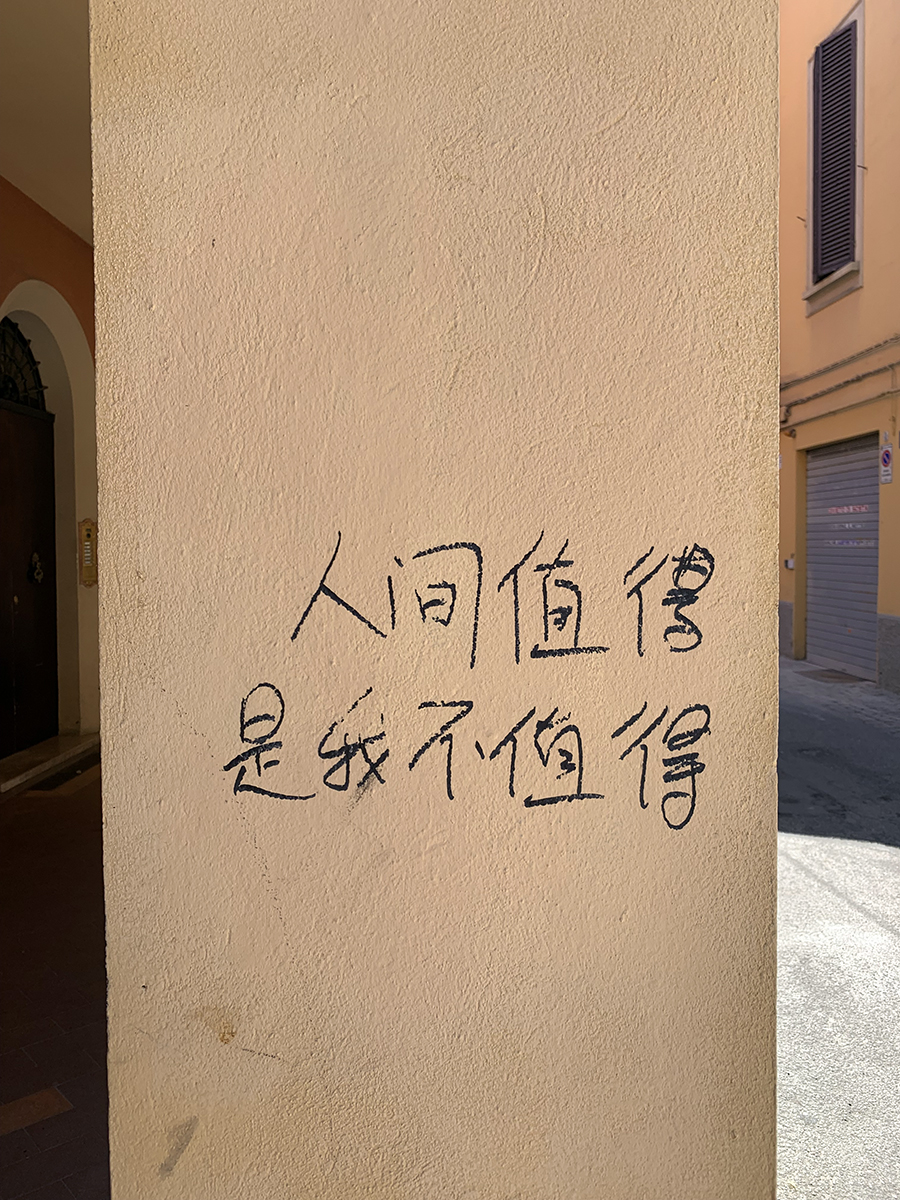 人间值得
是我不值得